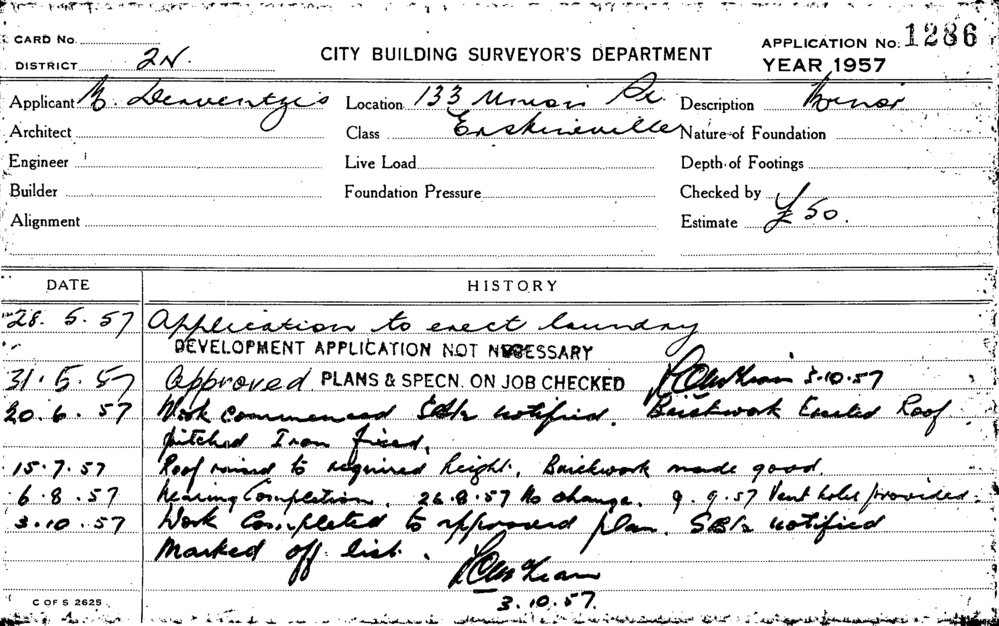 CARD No.
DISTRICT 2N.
CITY BUILDING SURVEYOR'S DEPARTMENT
APPLICATION No. 1286
YEAR 1957
Applicant Location 133 Union St. Description Minor
Architect Class Erskineville Nature of Foundation
Engineer Live Load Depth of Footings
Builder Foundation Pressure Checked by
Alignment Estimate £50.
DATE HISTORY
28.5.57 Application to erect laundry
DEVELOPMENT APPLICATION NOT NECESSARY
31.5.57 Approved PLANS & SPECN. ON JOB CHECKED 3.10.57
20.6.57 Work commenced notified. Brickwork Erected Roof
pitched Iron fixed.
15.7.57 Roof raised to required height, Brickwork made good.
6.8.57 Nearing Completion. 26.8.57 No change. 9.9.57 Vent holes provided.
3.10.57 Work Completed to approved plan. notified
Marked off list.
3.10.57.
C OF S 2625